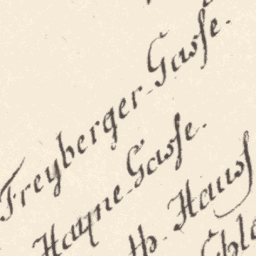 Freyberger-Gasse.
Hayne-Gasse.
Hauss